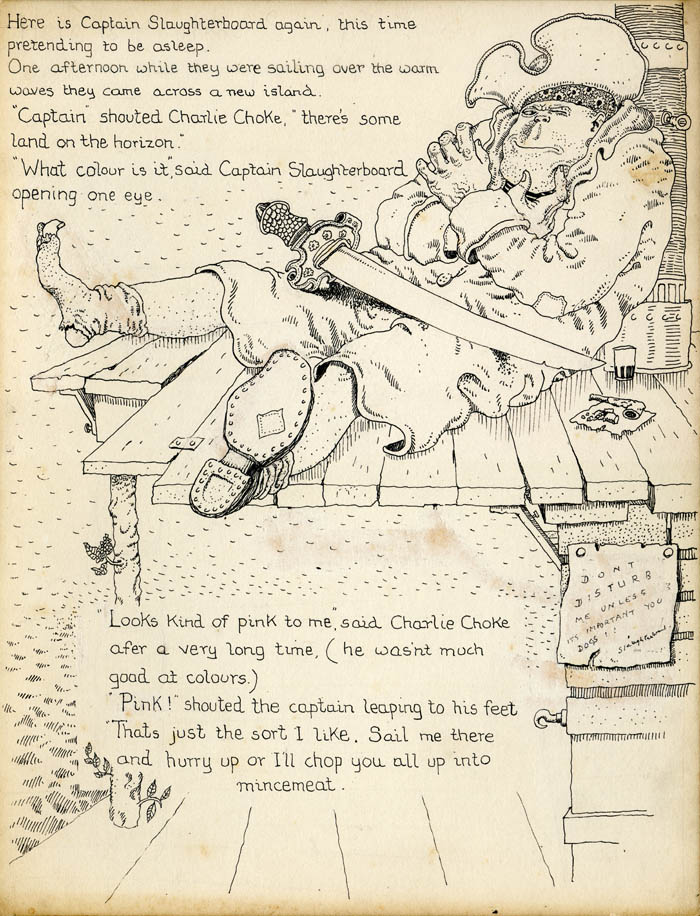 Here is Captain Slaughterboard again, this time
pretending to be asleep.
One afternoon while they were sailing over the warm
waves they came across a new island.
"Captain" shouted Charlie Choke, "there's some
land on the horizon."
"What colour is it", said Captain Slaughterboard
opening one eye
DONT
DISTURB
ME UNLESS
ITS IMPORTANT YOU
DOGS !
"Looks kind of pink to me", said Charlie Choke
afer a very long time, (he wasn't much
good at colours.)
"Pink!" shouted the captain leaping to his feet
"Thats just the sort I like. Sail me there
and hurry up or I'll chop you all up into
mincemeat.